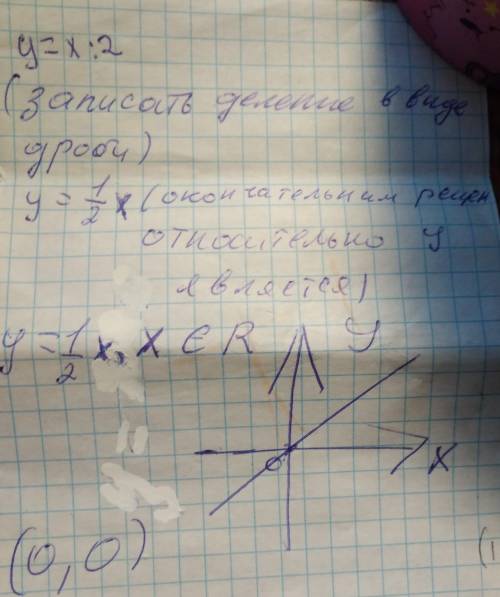 y = x : 2
(Записать деление в виде
дроби)
y = 1/2 x (окончательным решен
относительно y
является)
y = 1/2 x, x ∈ R
y
x
0
(0,0)
(1